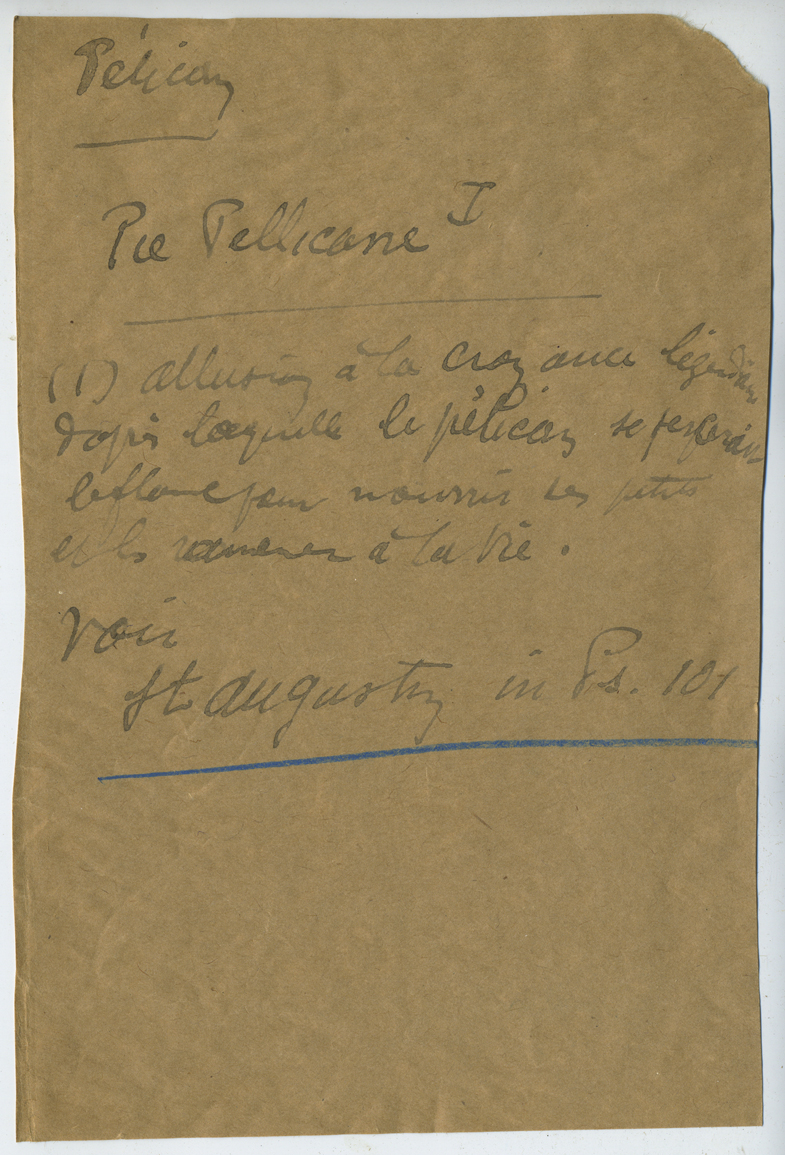 Pélican
Pie Pellicane I
(1) allusion à la croyance légendaire
d'après laquelle le pélican se perçerait
le flanc pour nourrir ses petits
et les ramener à la vie.
voir
St Augustin in Ps. 101